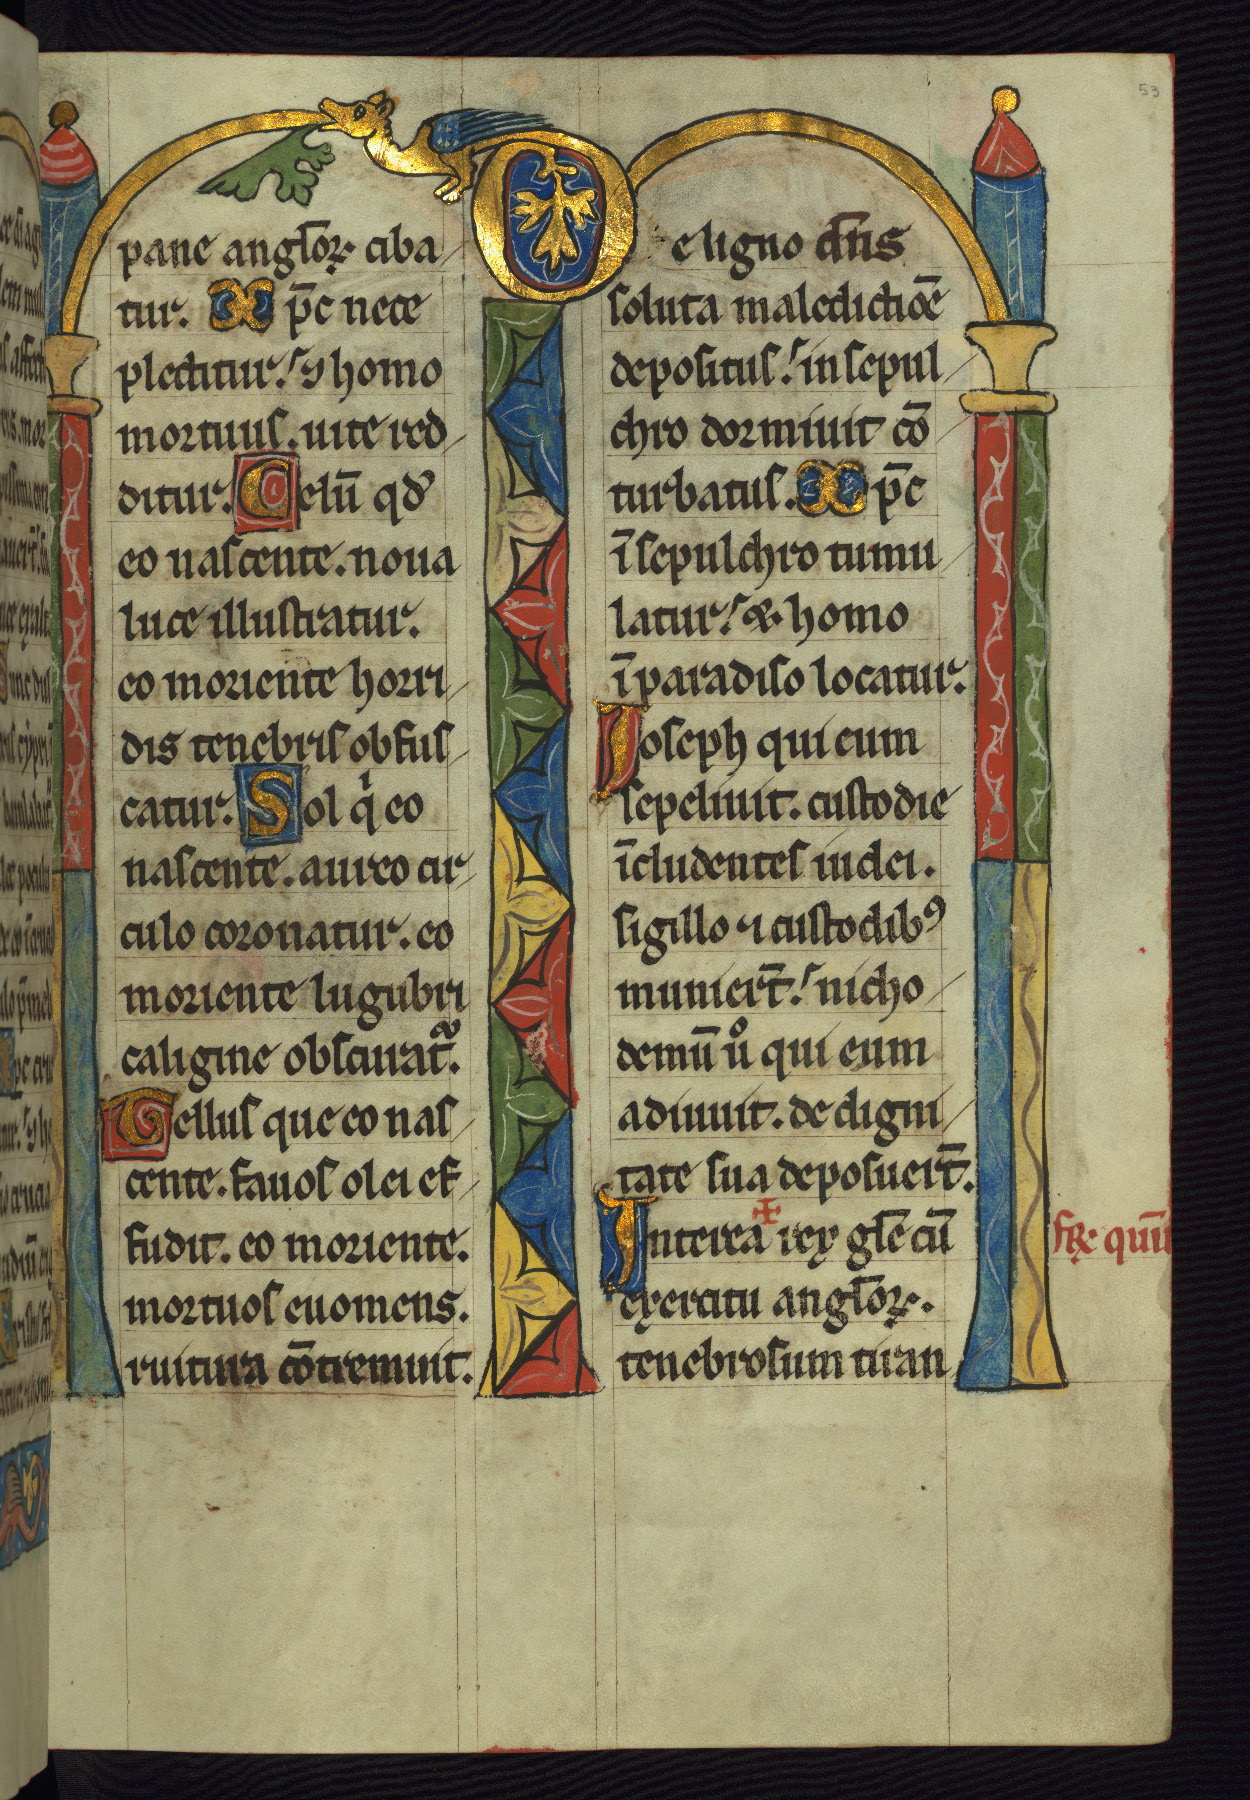 53
pane anglꝝ ciba
tur. Xp̅c nece
plectitur. ⁊ homo
mortuus. uite red
ditur. Celū qd̓
eo nascente. noua
luce illustratur.
eo moriente horri
dis tenebris obfus
catur. Sol qⁱ eo
nascente. aureo cir
culo coronatur. eo
moriente lugubri
caligine obscurat᷑.
Tellus que eo nas
cente. fauos olei ef
fudit. eo moriente.
mortuos euomens.
ruitura cōtremuit.
De ligno dn̄s
soluta maledictiōe
depositus. in sepul
chro dormiuit cō
turbatus. Xp̅c
ī sepulchro tumu
latur. & homo
ī paradiso locatur.
Ioseph qui eum
sepeliuit. custodie
īcludentes iudei.
sigillo ⁊ custodibꝰ
muniert̄. nicho
demū uͦ qui eum
adiuuit. de digni
tate sua deposuert̄.
Interea rex gl̄e cū
exercitu anglꝝ.
tenebrosum tiran